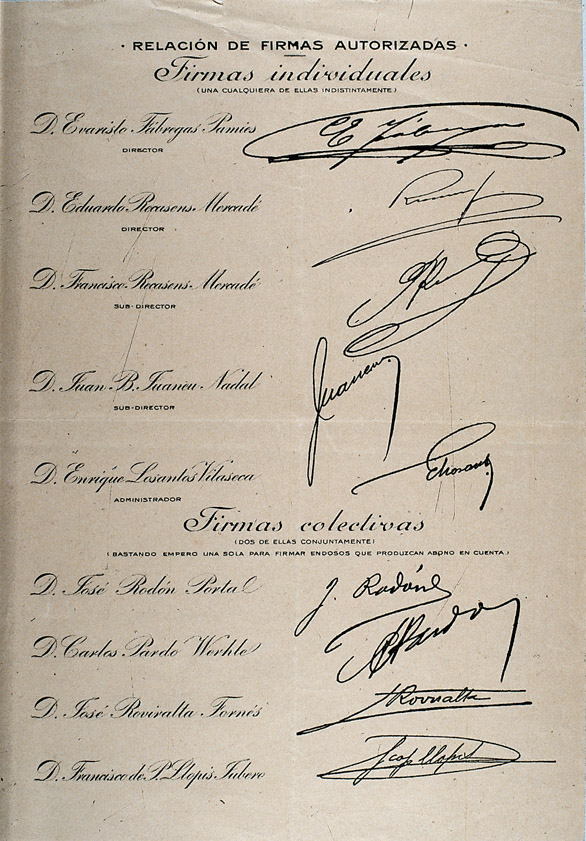 · RELACIÓN DE FIRMAS AUTORIZADAS ·
Firmas individuales
(UNA CUALQUIERA DE ELLAS INDISTINTAMENTE)
D. Evaristo Fábregas Pamies
DIRECTOR
D. Eduardo Recasens Mercadé
DIRECTOR
D. Francisco Recasens Mercadé
SUB-DIRECTOR
D. Juan B. Juaneu Nadal
SUB-DIRECTOR
Juaneu
D. Enrique Losantos Vilaseca
ADMINISTRADOR
Firmas colectivas
(DOS DE ELLAS CONJUNTAMENTE)
(BASTANDO EMPERO UNA SOLA PARA FIRMAR ENDOSOS QUE PRODUZCAN ABONO EN CUENTA)
D. José Rodón Portal J. Rodón
D. Carlos Pardo Werhle Pardo
D. José Roviralta Fornés Roviralta
D. Francisco de P. Llopis Tubero Llopis